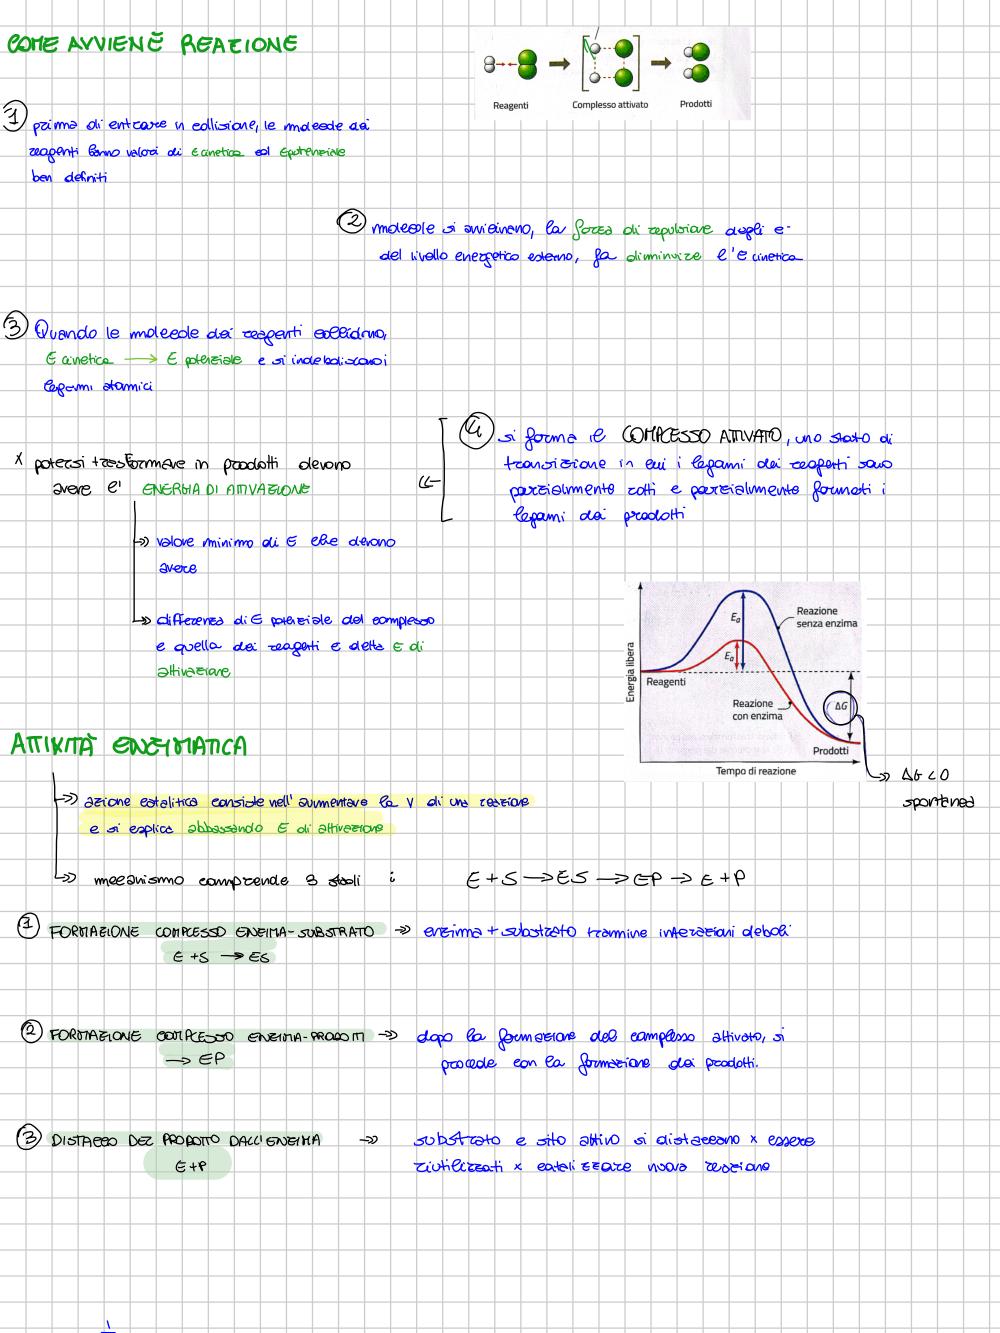 COME AVVIENE REAZIONE
Reagenti
Complesso attivato
Prodotti
1 prima di entrare in collisione, le molecole dei
reagenti hanno valori di E cinetica ed Epotenziale
ben definiti
2 molecole si avvicinano, la forza di repulsione degli e-
del livello energetico esterno, fa diminuire l'E cinetica
3 Quando le molecole dei reagenti collidono,
E cinetica → E potenziale e si indeboliscono i
legami atomici
4 si forma il COMPLESSO ATTIVATO, uno stato di
transizione in cui i legami dei reagenti sono
parzialmente rotti e parzialmente formati i
legami dei prodotti
x potersi trasformare in prodotti devono
avere l' ENERGIA DI ATTIVAZIONE
→ valore minimo di E che devono
avere
→ differenza di E potenziale del complesso
e quella dei reagenti e detta E di
attivazione
Energia libera
Ea
Ea
Reazione
senza enzima
Reagenti
Reazione
con enzima
ΔG
Prodotti
Tempo di reazione
→ ΔG<0
spontanea
ATTIVITÀ ENZIMATICA
→ azione catalitica consiste nell'aumentare la v di una reazione
e si esplica abbassando E di attivazione
→ meccanismo comprende 3 stadi : E + S → ES → EP → E + P
1 FORMAZIONE COMPLESSO ENZIMA-SUBSTRATO → enzima + substrato tramite interazioni deboli
E + S → ES
2 FORMAZIONE COMPLESSO ENZIMA-PRODOTTI → dopo la formazione del complesso attivato, si
→ EP
procede con la formazione dei prodotti.
3 DISTACCO DEL PRODOTTO DALL'ENZIMA → substrato e sito attivo si distaccano x essere
E+P
riutilizzati x catalizzare nuova reazione